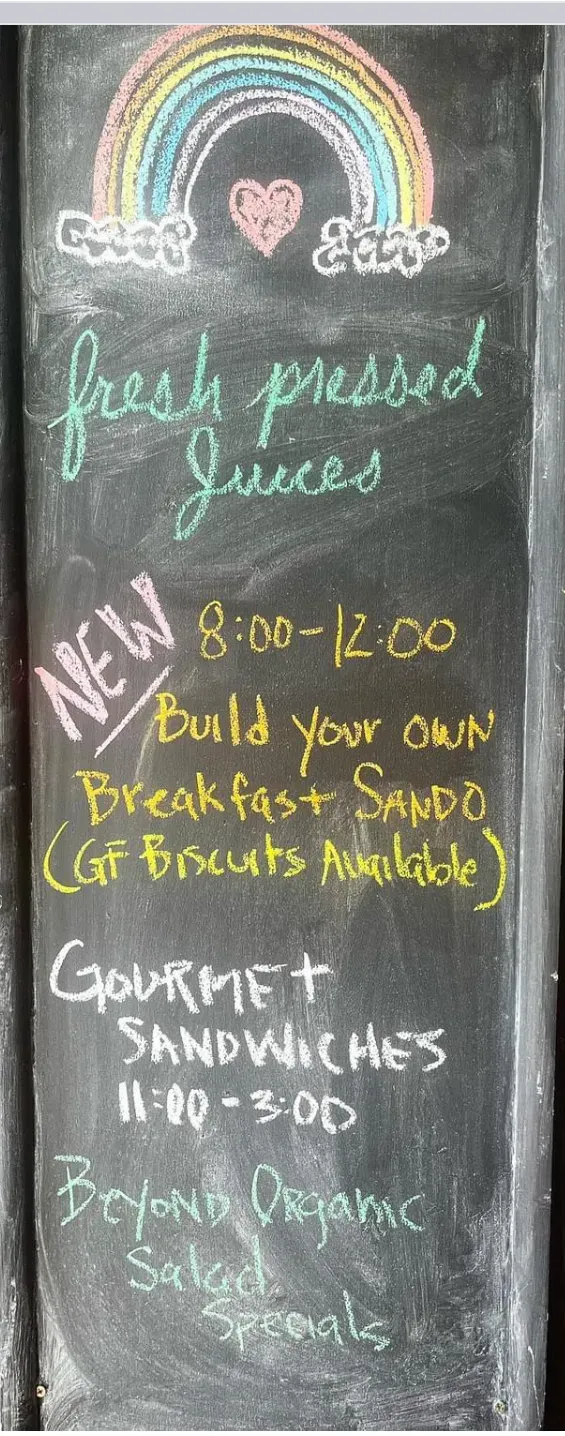 fresh pressed
Juices
NEW
8:00-12:00
Build your OWN
Breakfast SANDO
(GF Biscuits Available)
GOURMEt
SANDWICHES
11:00-3:00
BeyOND Organic
Salad
Specials